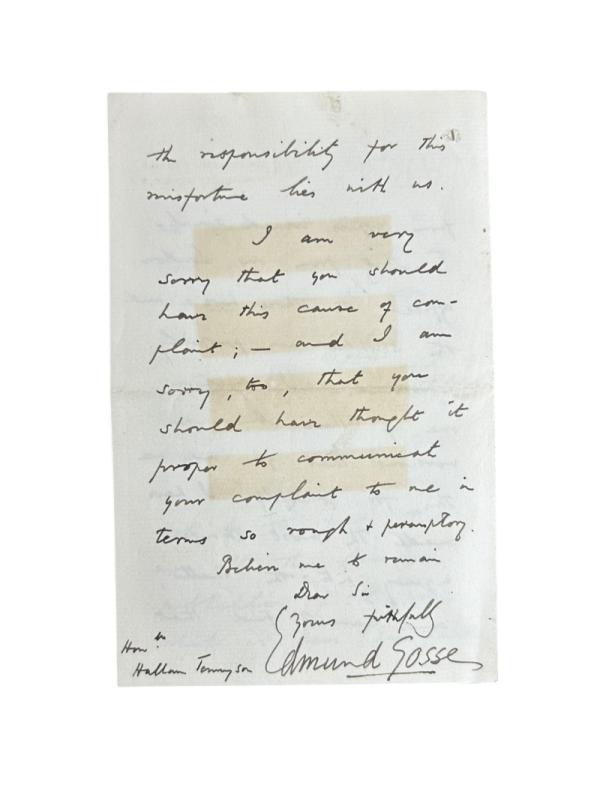 the responsibility for this
misfortune lies with us.
I am very
sorry that you should
have this cause of com-
plaint; — and I am
sorry, too, that you
should have thought it
proper to communicate
your complaint to me in
terms so rough & peremptory.
Believe me to remain
Dear Sir
Yours faithfully
Edmund Gosse
Honble
Hallam Tennyson